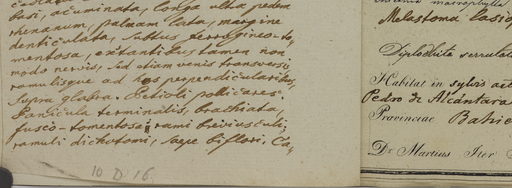 basi, acuminata, longa ultra pedem
rhenanum, palmam lata, margine
denticulata, subtus ferrugineo-to,
mentosa, extantibus tamen non
modo nervis, sed etiam venis transversis,
ramulisque ad hos perpendicularibus,
supra glabra. Petioli pollicares.
Panicula terminalis, brachiata,
fusco-tomentosa; rami breviusculi;
ramuli dichotomi, saepe biflori. Ca,
10 D 16
Melastoma
Diplochita serrulata
Habitat in sylvis
Pedro de Alcántara
Provinciae Bahie
Dr Martius Iter